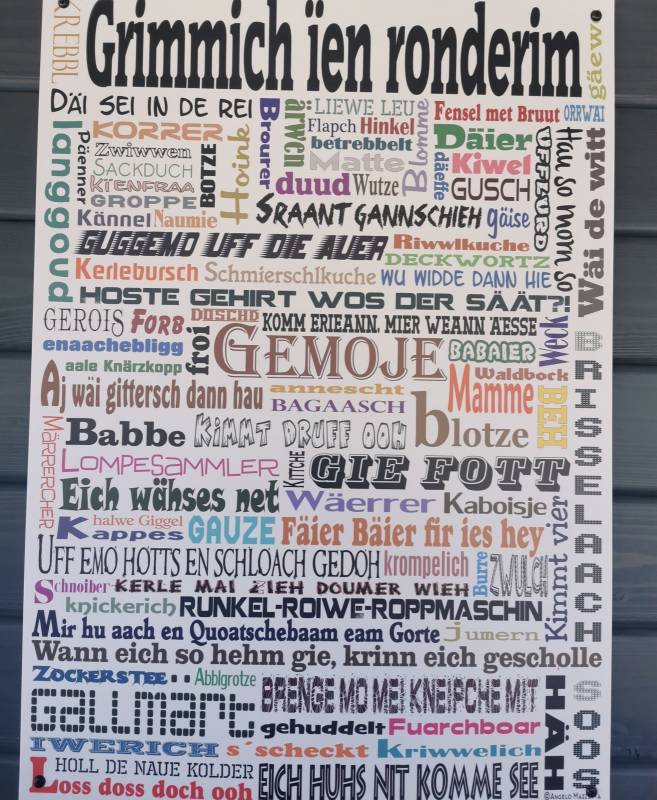 KREBBL
Grimmich ïen ronderim
gäew
DÄI SEI IN DE REI
Brourer
ärwen
LIEWE LEU
Blomme
Fensel met Bruut
ORRWAI
langgoud
Päenner
KORRER
Zwiwwen
SACKDUCH
KIENFRAA
GROPPE
BOTZE
Hoink
Flapch Hinkel
betrebbelt
Matte
duud Wutze
Däier
däeffe
Kiwel
GUSCH
UFFLURD
Hau so morn so
Wäi de witt
Kännel Naumie
SRAANT GANNSCHIEH
gäise
GUGGEMO UFF DIE AUER
Riwwlkuche
DECKWORTZ
Kerlebursch Schmierschlkuche
WU WIDDE DANN HIE
HOSTE GEHIRT WOS DER SÄÄT?!
GEROIS FORB
DOSCHD
KOMM ERIEANN, MIER WEANN ÄESSE
Weck
BRISSELAACH
enaachebligg
froi
GEMOJE
BABAIER
Waldbock
aale Knärzkopp
Aj wäi gittersch dann hau
annescht
BAGAASCH
Mamme
BEH
MÄRBERCHER
Babbe
KIMMT DRUFF OOH
blotze
LOMPESAMMLER
KITCHE
GIE FOTT
Eich wähses net
Wäerrer
Kaboisje
Kimmt vier
halwe Giggel
Kappes
GAUZE
Fäier Bäier fir ies hey
UFF EMO HOTTS EN SCHLOACH GEDOH
krompelich
Burre
ZWULCH
Schnoiber
KERLE MAI ZIEH DOUMER WIEH
knickerich
RUNKEL-ROIWE-ROPPMASCHIN
Mir hu aach en Quoatschebaam eam Gorte
jumern
Wann eich so hehm gie, krinn eich gescholle
ZOCKERSTEE
Abblgrotze
BRENGE MO MEI KNEIPCHE MIT
HÄH
SOOS
GALLMÄRT
gehuddelt
Fuarchboar
IWERICH
s´scheckt
Kriwwelich
HOLL DE NAUE KOLDER
Loss doss doch ooh
EICH HUHS NIT KOMME SEE